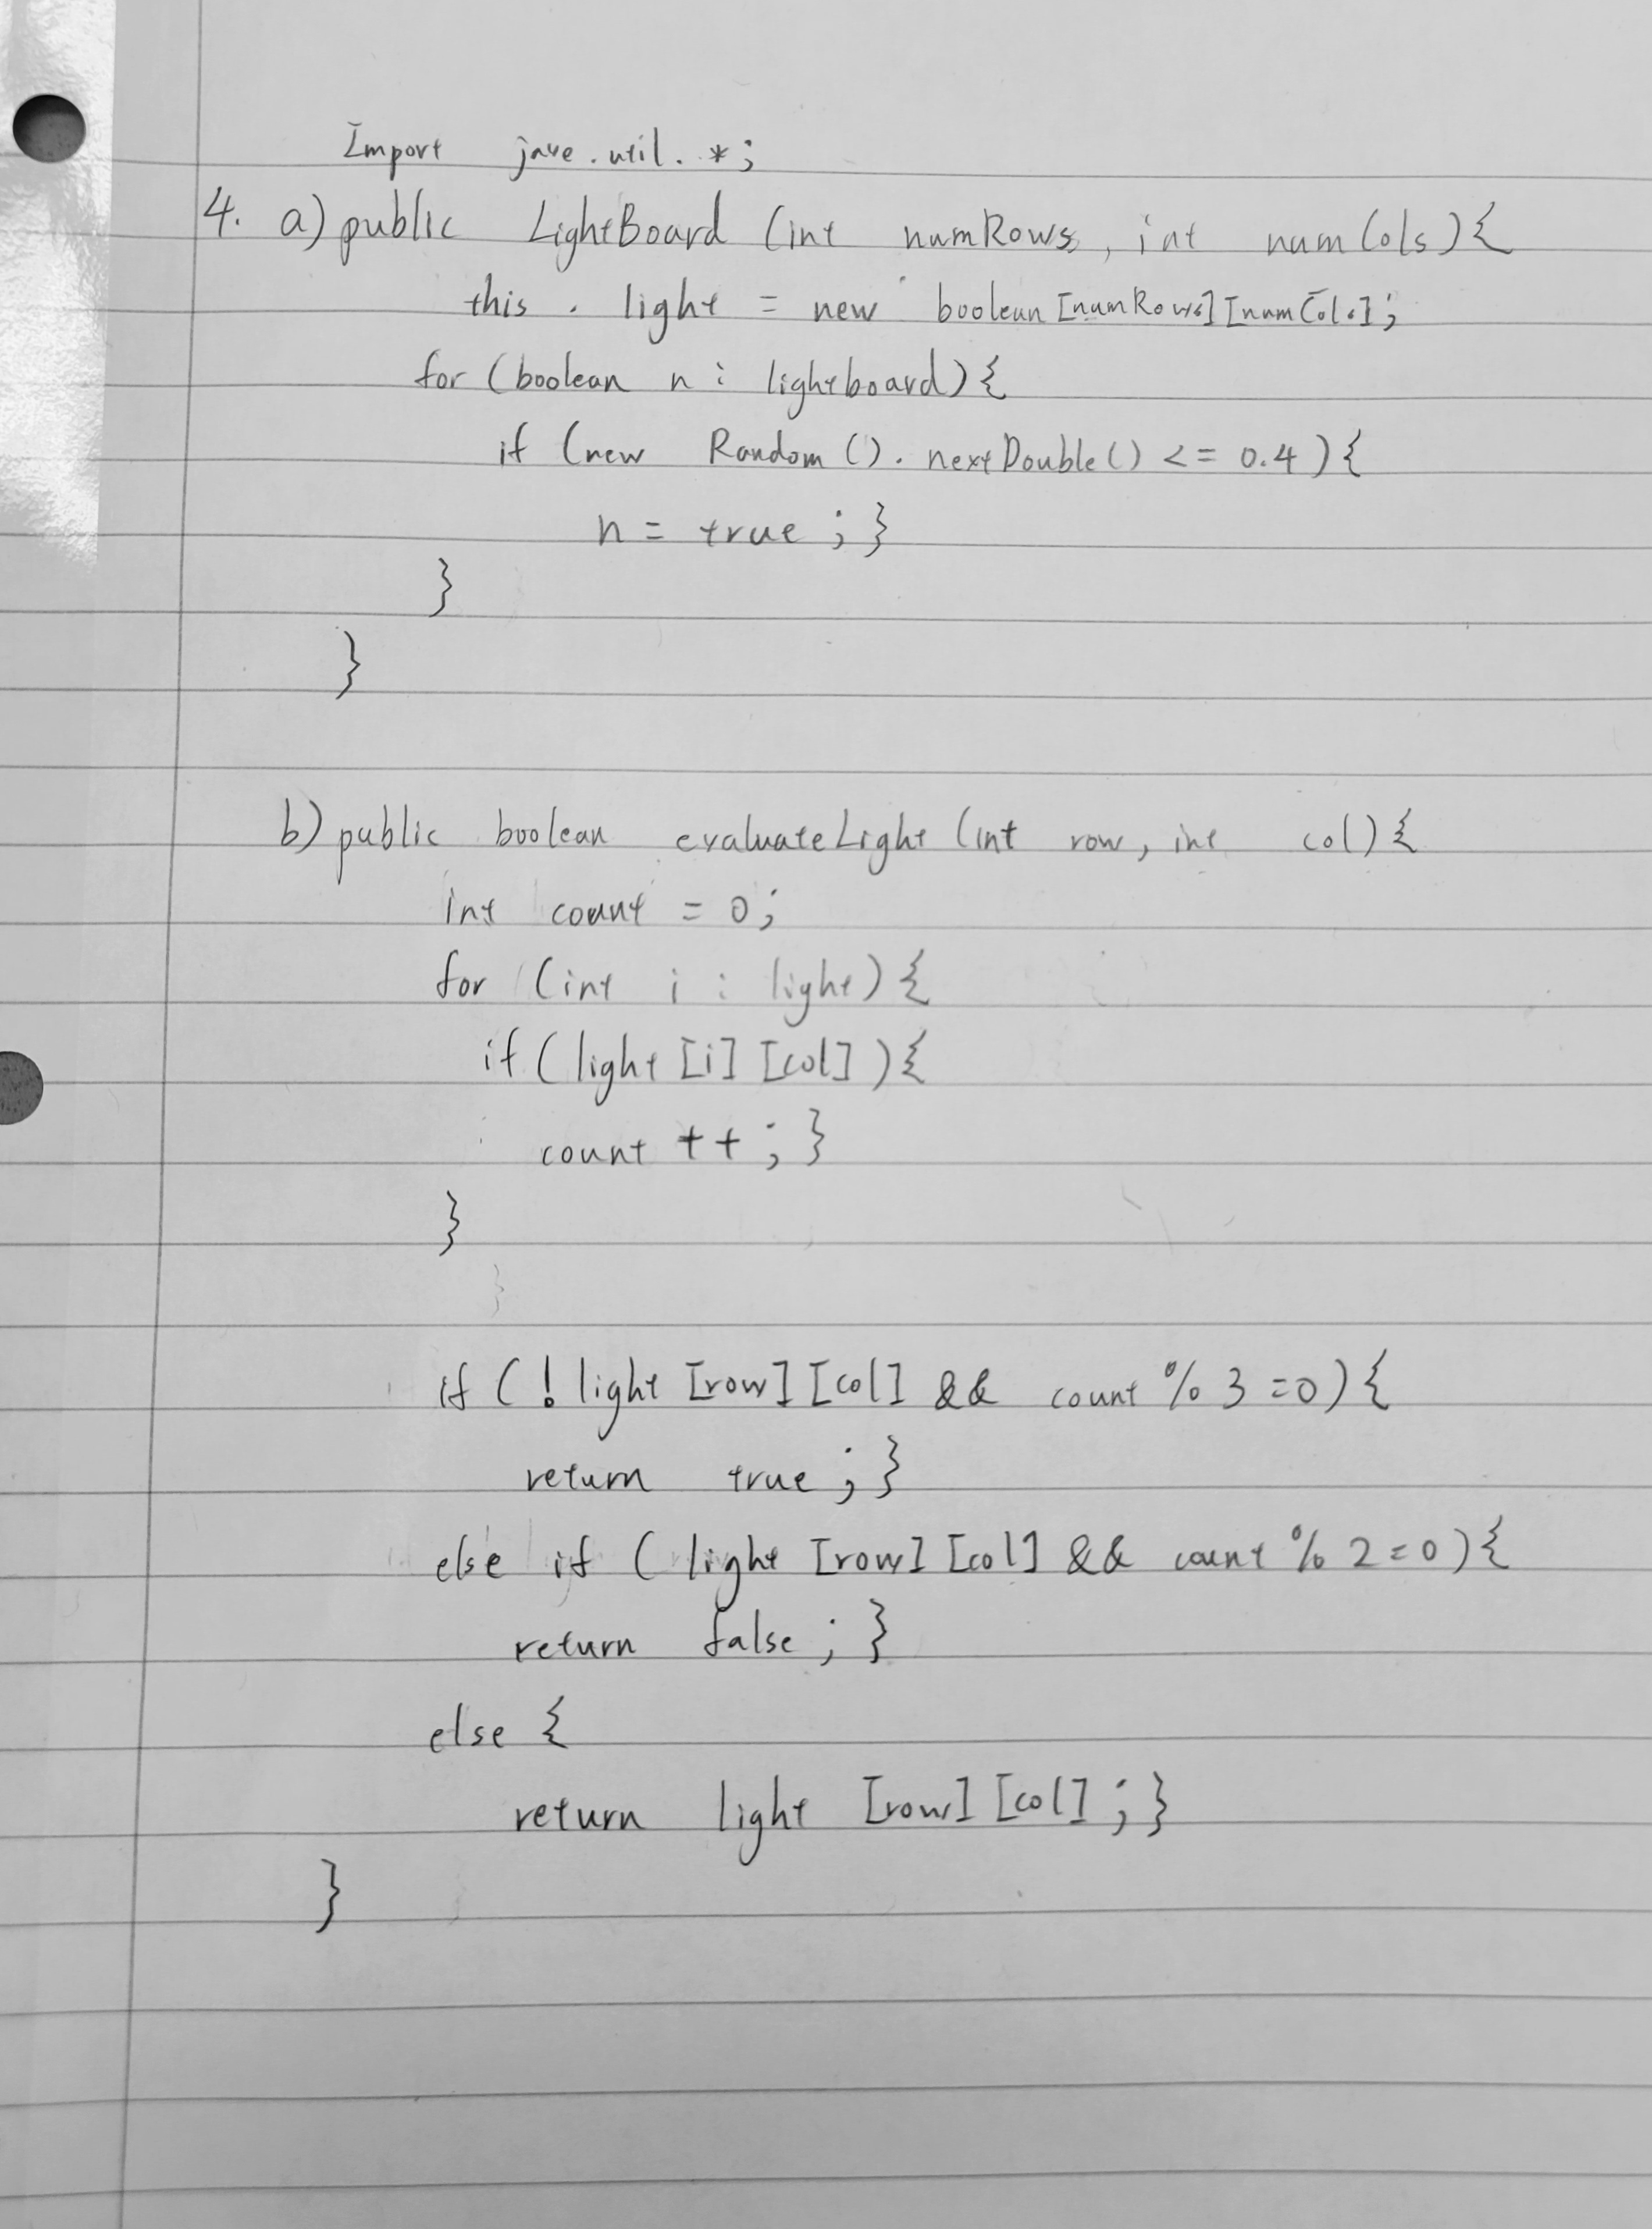 Import jave.util.*;
4. a) public LightBoard (int numRows, int numCols){
this . light = new boolean [numRows][numCols];
for (boolean n : lightboard) {
if (new Random (). nextDouble() <= 0.4 ) {
n = true ; }
}
}
b) public boolean evaluateLight (int row, int col) {
int count = 0;
for (int i : light) {
if ( light [i] [col] ) {
count ++ ; }
}
if ( ! light [row] [col] && count % 3 =0) {
return true ; }
else if ( light [row] [col] && count % 2 =0) {
return false ; }
else {
return light [row] [col] ; }
}